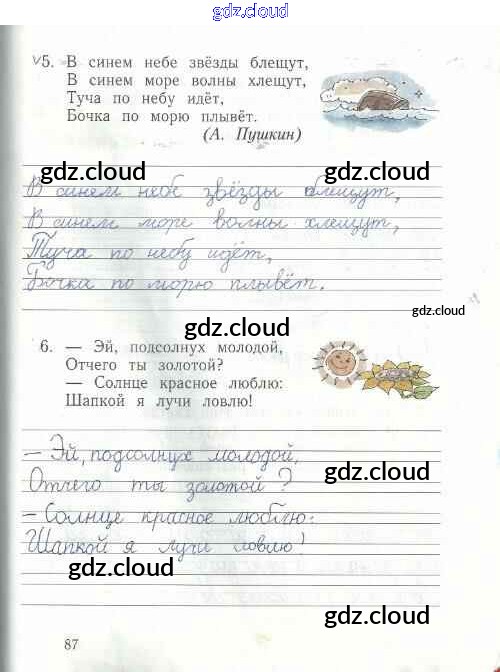 gdz.cloud
5. В синем небе звёзды блещут,
В синем море волны хлещут,
Туча по небу идёт,
Бочка по морю плывёт.
(А. Пушкин)
gdz.cloud
gdz.cloud
В синем небе звёзды блещут,
В синем море волны хлещут,
Туча по небу идёт,
gdz.cloud
Бочка по морю плывёт.
gdz.cloud
gdz.cloud
6. — Эй, подсолнух молодой,
Отчего ты золотой?
— Солнце красное люблю:
Шапкой я лучи ловлю!
gdz.cloud
— Эй, подсолнух молодой,
gdz.cloud
Отчего ты золотой?
— Солнце красное люблю:
Шапкой я лучи ловлю!
gdz.cloud
gdz.cloud
87
gdz.cloud